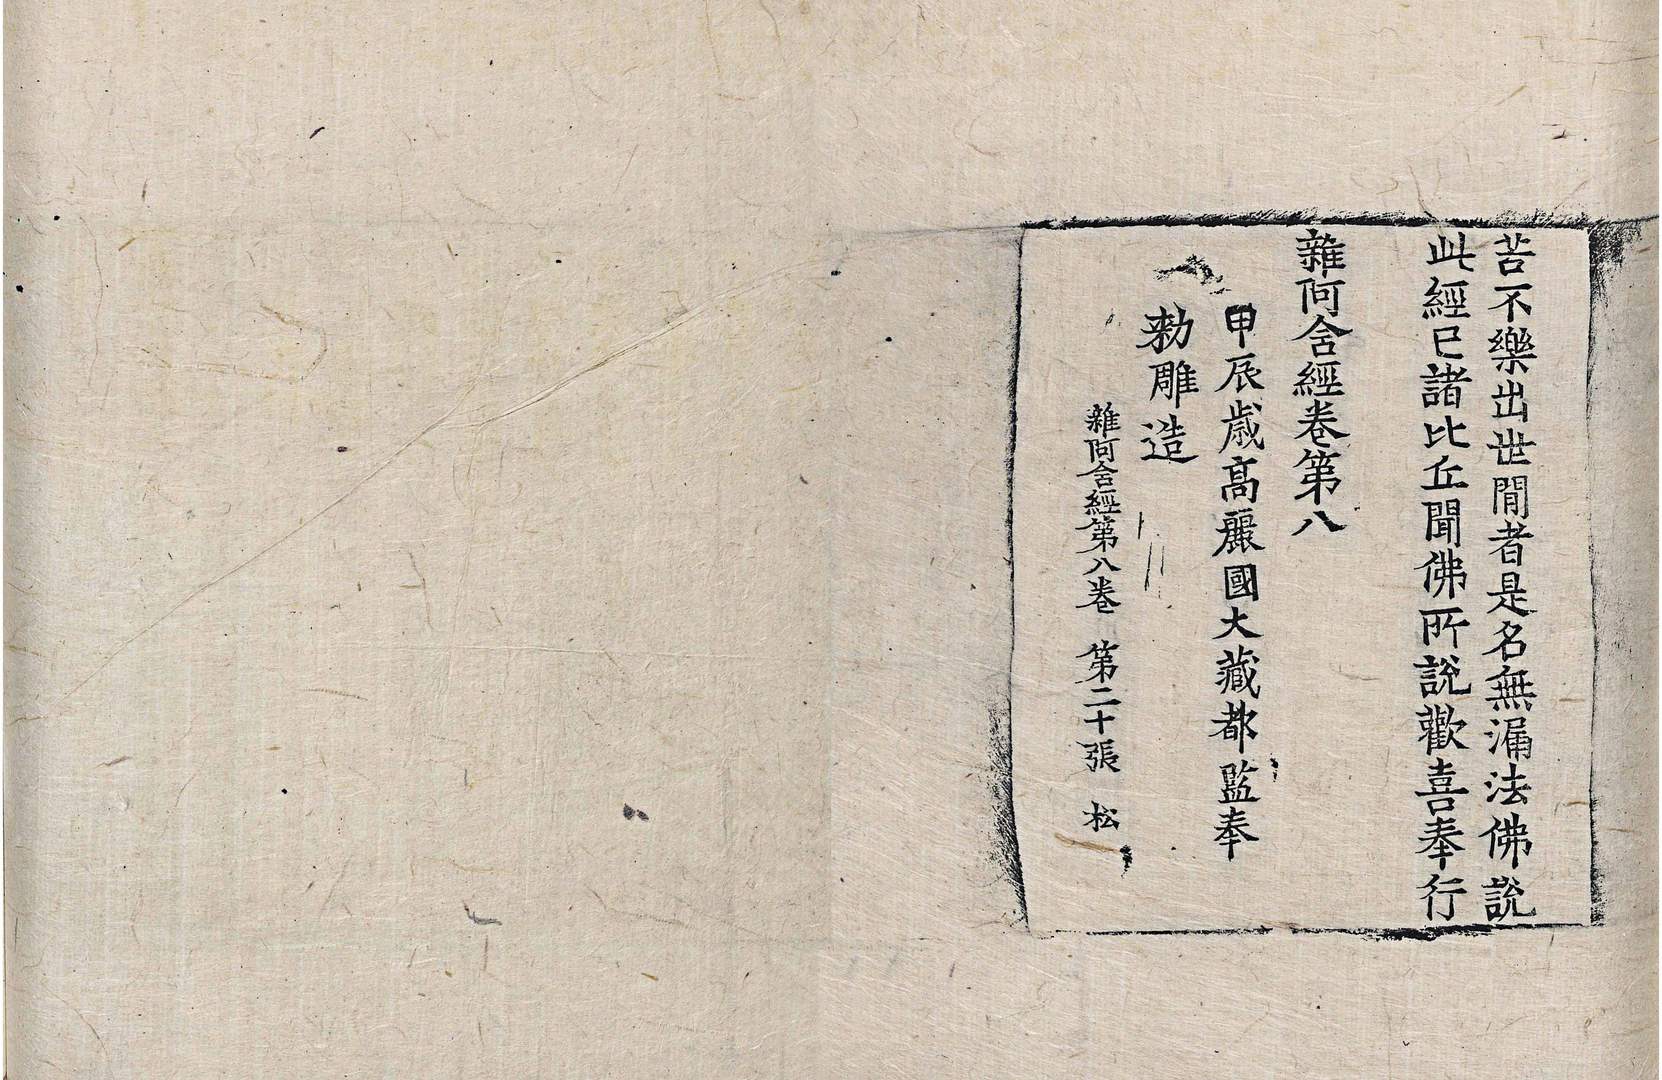 苦不樂出世閒者是名無漏法佛說
此經已諸比丘聞佛所說歡喜奉行
雜阿含經卷第八
甲辰歲高麗國大藏都監奉
勅雕造
雜阿含經第八卷　第二十張　松